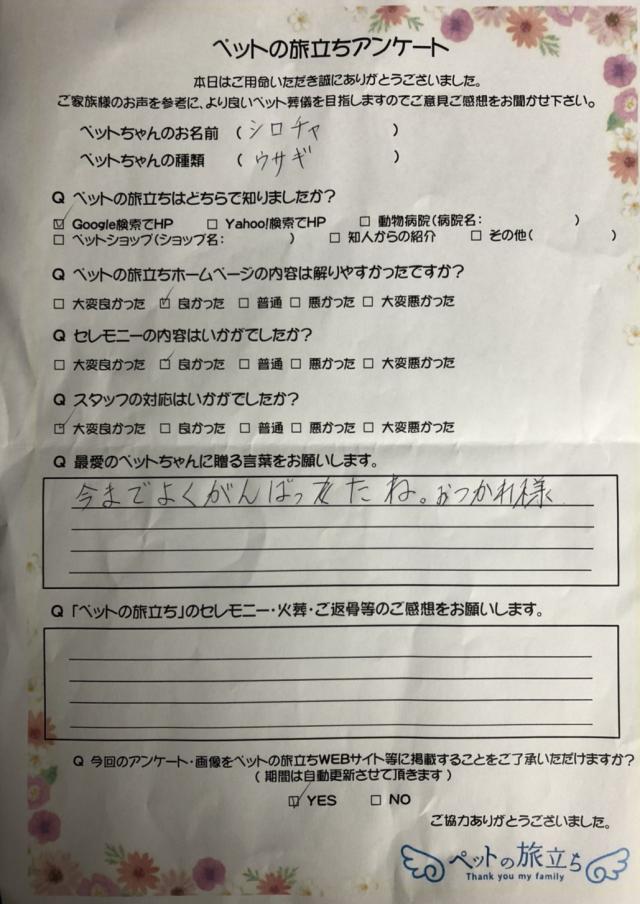 ペットの旅立ちアンケート
本日はご用命いただき誠にありがとうございました。
ご家族様のお声を参考に、より良いペット葬儀を目指しますのでご意見ご感想をお聞かせ下さい。
ペットちゃんのお名前 ( シロチャ )
ペットちゃんの種類 ( ウサギ )
Q ペットの旅立ちはどちらで知りましたか?
☑ Google検索でHP □ Yahoo!検索でHP □ 動物病院(病院名: )
□ ペットショップ(ショップ名: ) □ 知人からの紹介 □ その他( )
Q ペットの旅立ちホームページの内容は解りやすかったですか?
□ 大変良かった ☑ 良かった □ 普通 □ 悪かった □ 大変悪かった
Q セレモニーの内容はいかがでしたか?
□ 大変良かった ☑ 良かった □ 普通 □ 悪かった □ 大変悪かった
Q スタッフの対応はいかがでしたか?
☑ 大変良かった □ 良かった □ 普通 □ 悪かった □ 大変悪かった
Q 最愛のペットちゃんに贈る言葉をお願いします。
今までよくがんばってたね。おつかれ様
Q 「ペットの旅立ち」のセレモニー・火葬・ご返骨等のご感想をお願いします。
Q 今回のアンケート・画像をペットの旅立ちWEBサイト等に掲載することをご了承いただけますか?
( 期間は自動更新させて頂きます )
☑ YES □ NO
ご協力ありがとうございました。
ペットの旅立ち
Thank you my family